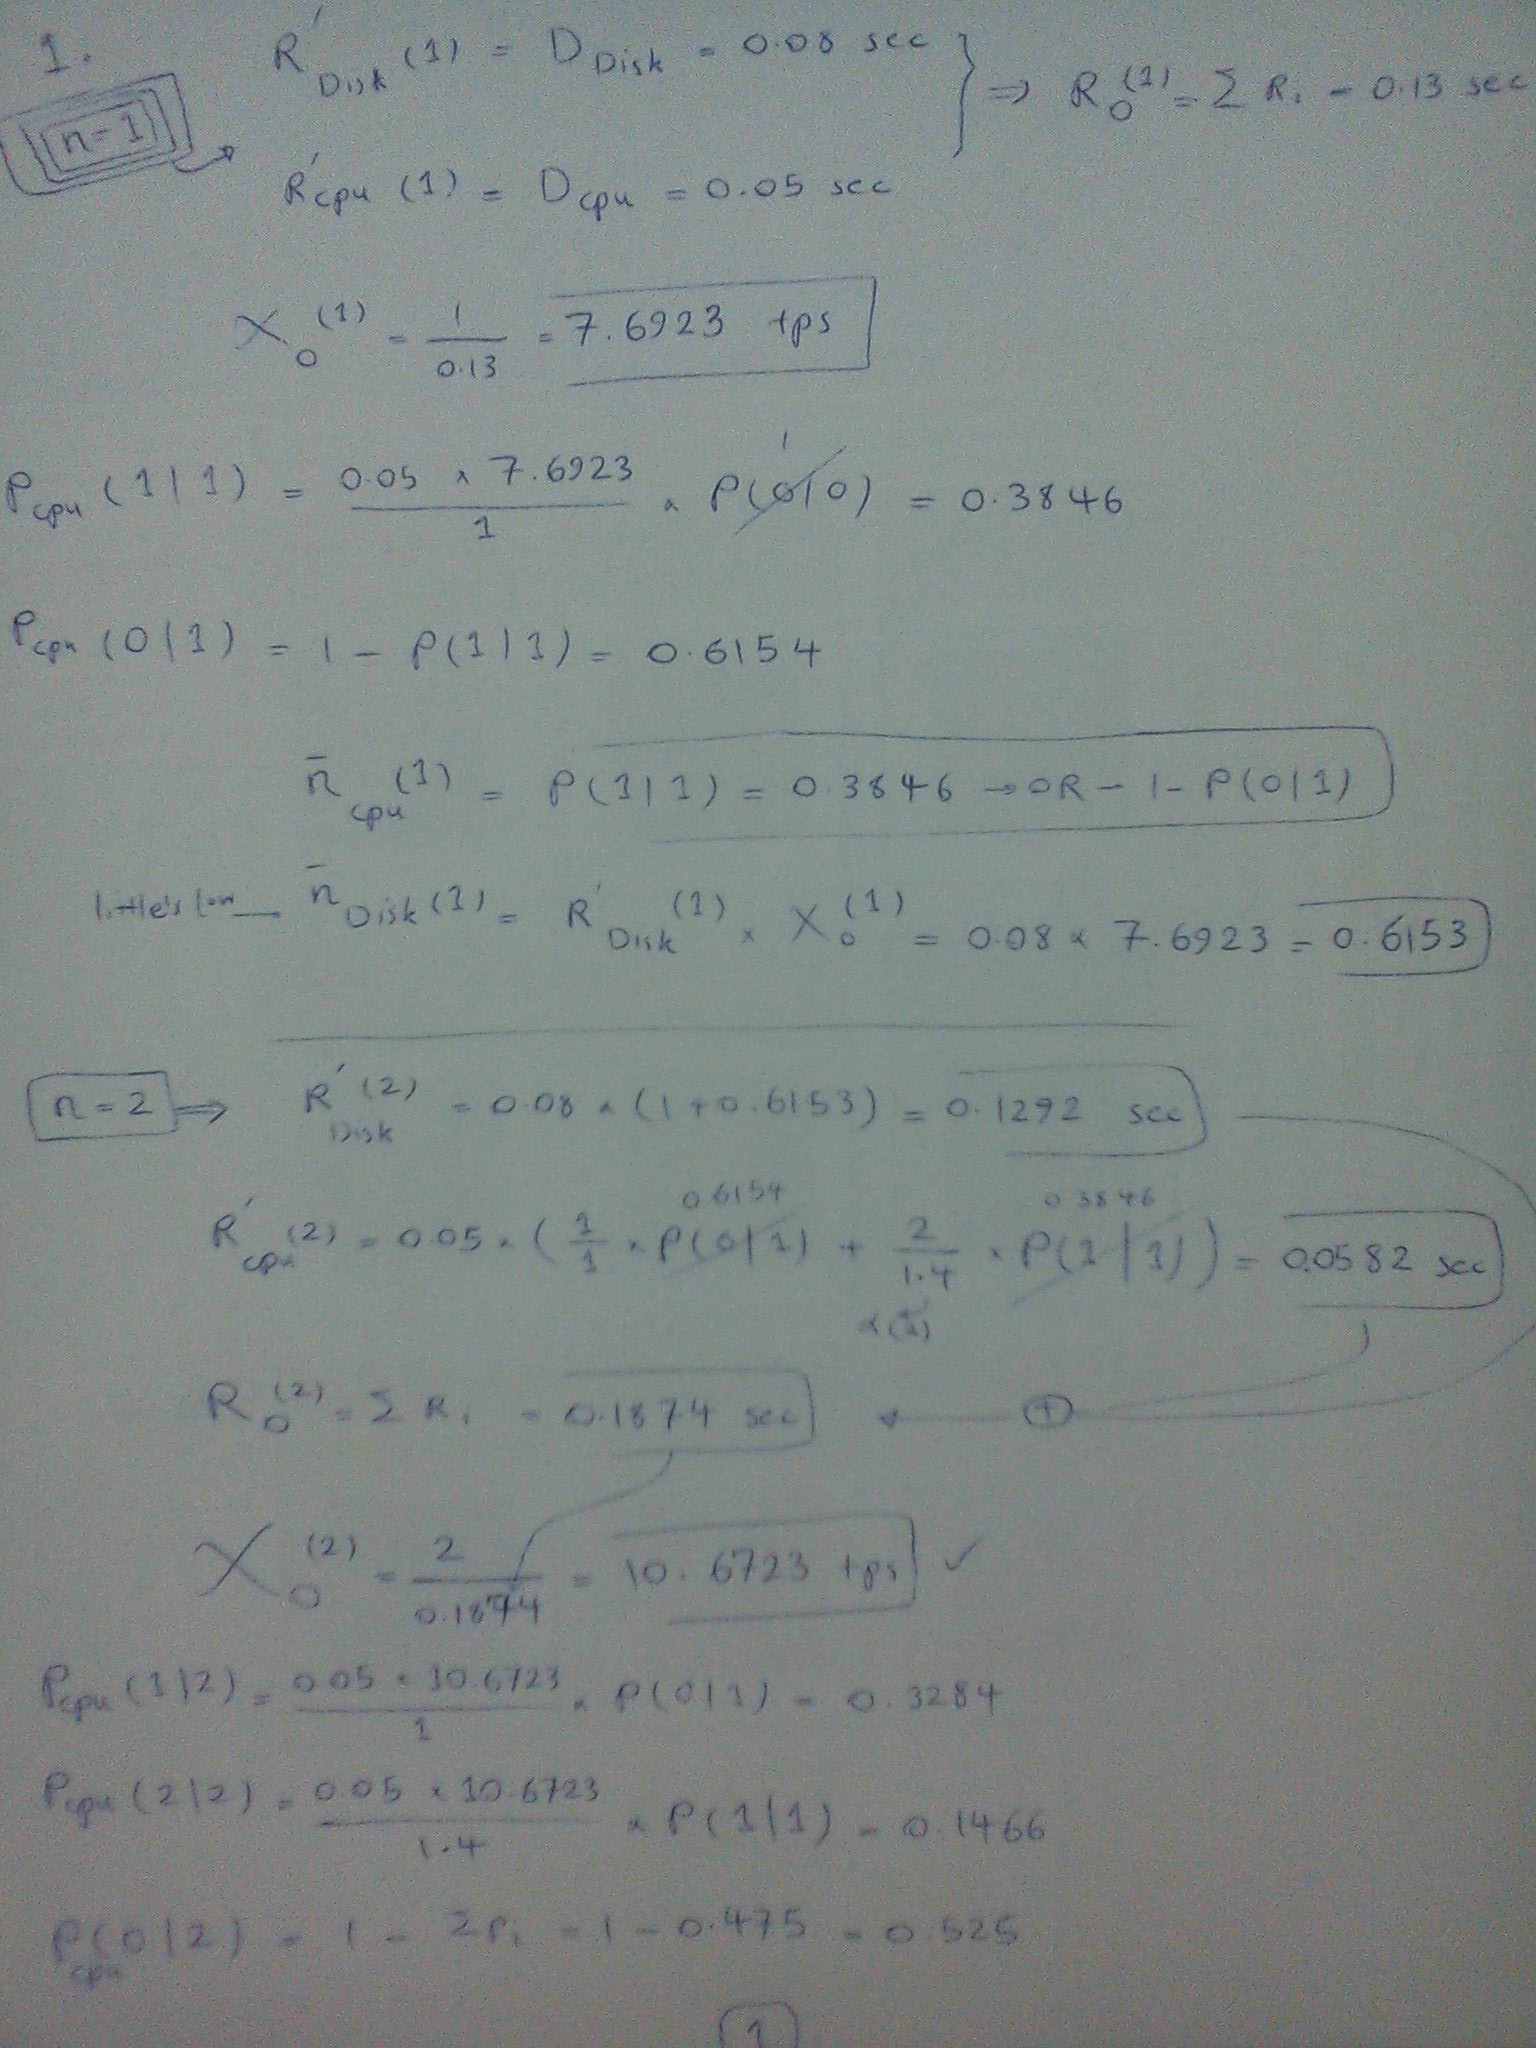 1.
R'Disk (1) = D Disk = 0.08 sec } ⇒ R0(1) = Σ Ri = 0.13 sec
n=1
R'cpu (1) = Dcpu = 0.05 sec
X0(1) = 1/0.13 = 7.6923 tps
Pcpu (1|1) = 0.05 × 7.6923 / 1 × P(0|0) 1 = 0.3846
Pcpu (0|1) = 1 - P(1|1) = 0.6154
n̄cpu(1) = P(1|1) = 0.3846 → OR - 1 - P(0|1)
little's law → n̄Disk(1) = R'Disk(1) × X0(1) = 0.08 × 7.6923 = 0.6153
n=2 ⇒ R'Disk(2) = 0.08 × (1+0.6153) = 0.1292 sec
0.6154 0.3846
R'cpu(2) = 0.05 × (1/1 × P(0|1) + 2/1.4 × P(1|1)) = 0.0582 sec
α(2)
R0(2) = Σ Ri = 0.1874 sec ← +
X0(2) = 2/0.1874 = 10.6723 tps ✓
Pcpu(1|2) = 0.05 × 10.6723 / 1 × P(0|1) = 0.3284
Pcpu(2|2) = 0.05 × 10.6723 / 1.4 × P(1|1) = 0.1466
Pcpu(0|2) = 1 - ΣPi = 1 - 0.475 = 0.525
1